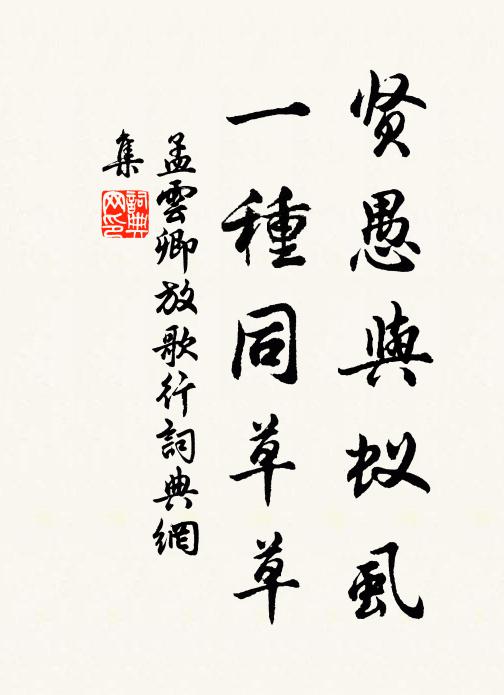 贤愚與蚁虱
一種同草草
孟雲卿放歌行詞典網
集
詞典
网印